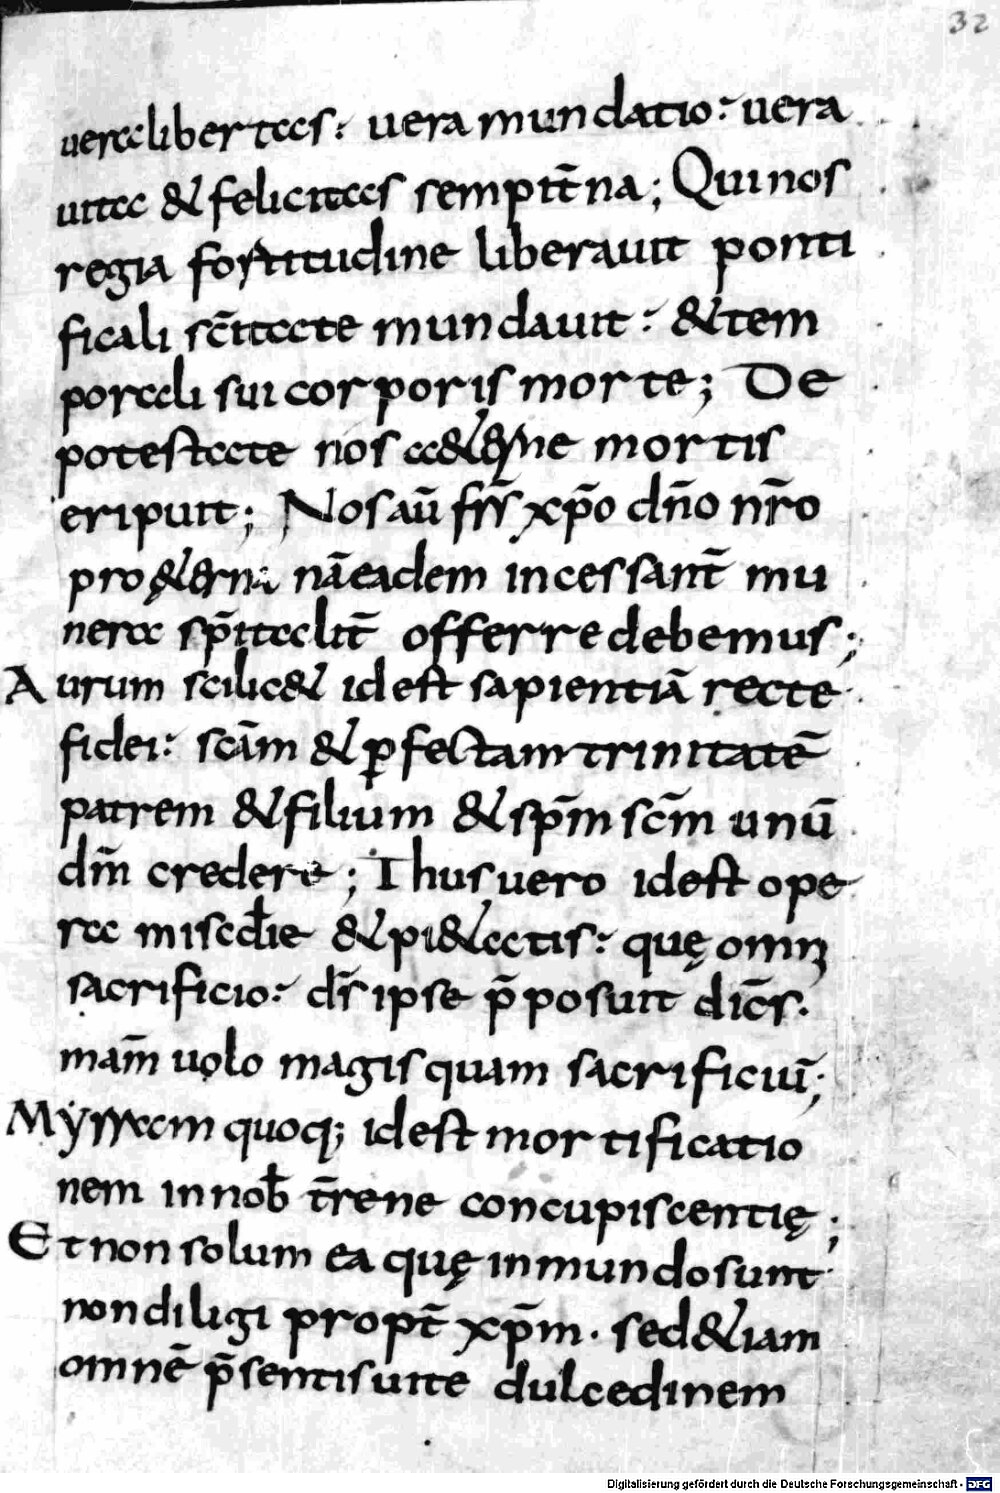 32
uera libertas: uera mundatio: uera
uita & felicitas sempit̄na; Qui nos
regia fortitudine liberauit ponti
ficali sc̄itate mundauit: & tem
porali sui corporis morte; De
potestate nos a&erne mortis
eripuit; Nos aū fr̄s xp̄o dn̄o nr̄o
pro &erna nā eadem incessant̄ mu
nera sp̄italit̄ offerre debemus;
Aurum scilic& id est sapientiā recte
fidei: sc̄am & ꝑfectam trinitatē
patrem & filium & sp̄m sc̄m unū
dm̄ credere; Thus uero id est ope
ra miscd̄ie & pi&atis: quę omī
sacrificio: ds̄ ipse p̄posuit dic̄s.
mam̄ uolo magis quam sacrificiū;
Myrram quoq; id est mortificatio
nem in nob̄ t̄rene concupiscentię;
Et non solum ea quę in mundo sunt
non diligi propt̄ xp̄m. sed &iam
omnē p̄sentis uite dulcedinem
Digitalisierung gefördert durch die Deutsche Forschungsgemeinschaft - DFG